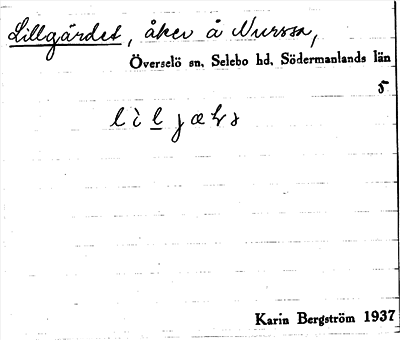 Lillgärdet, åker å Nurssa,
Överselö sn, Selebo hd, Södermanlands län
5
Karin Bergström 1937